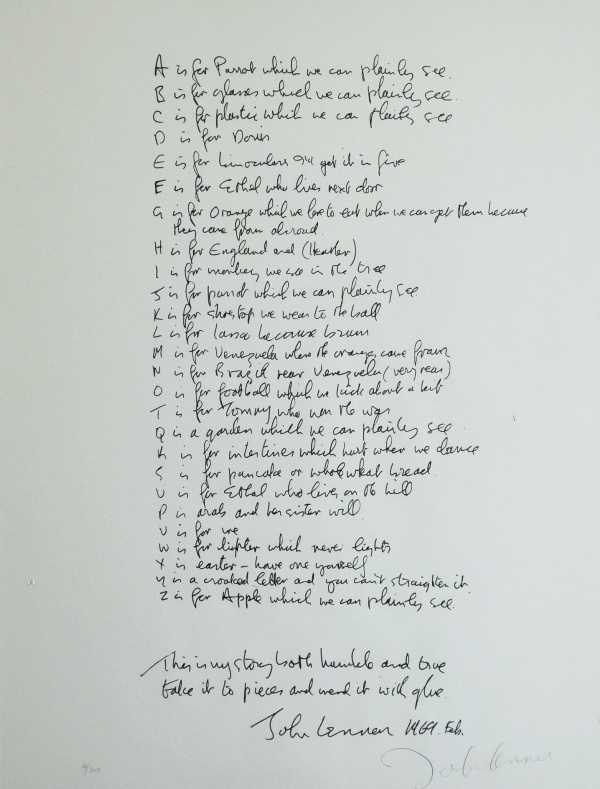 A is for Parrot which we can plainly see.
B is for glasses which we can plainly see.
C is for plastic which we can plainly see
D is for Doris
E is for binoculars I'll get it in five
E is for Ethel who lives next door
G is for Orange which we love to eat when we can get them because
they come from abroad.
H is for England and (Heather)
I is for monkey we see in the tree
J is for parrot which we can plainly see
K is for shoetop we wear to the ball
L is for lassa because brum
M is for Venezuela where the oranges come from
N is for Brazil near Venezuela (very near)
O is for football which we kick about a bit
T is for Tommy who won the war
Q is a garden which we can plainly see
R is for intestines which hurt when we dance
S is for pancake or whole wheat bread
U is for Ethel who lives on the hill
P is arab and her sister will
V is for me
W is for lighter which never lights
X is easter - have one yourself
Y is a crooked letter and you can't straighten it
Z is for Apple which we can plainly see.
This is my story both humble and true
take it to pieces and mend it with glue.
John Lennon 1969. Feb.
John Lennon